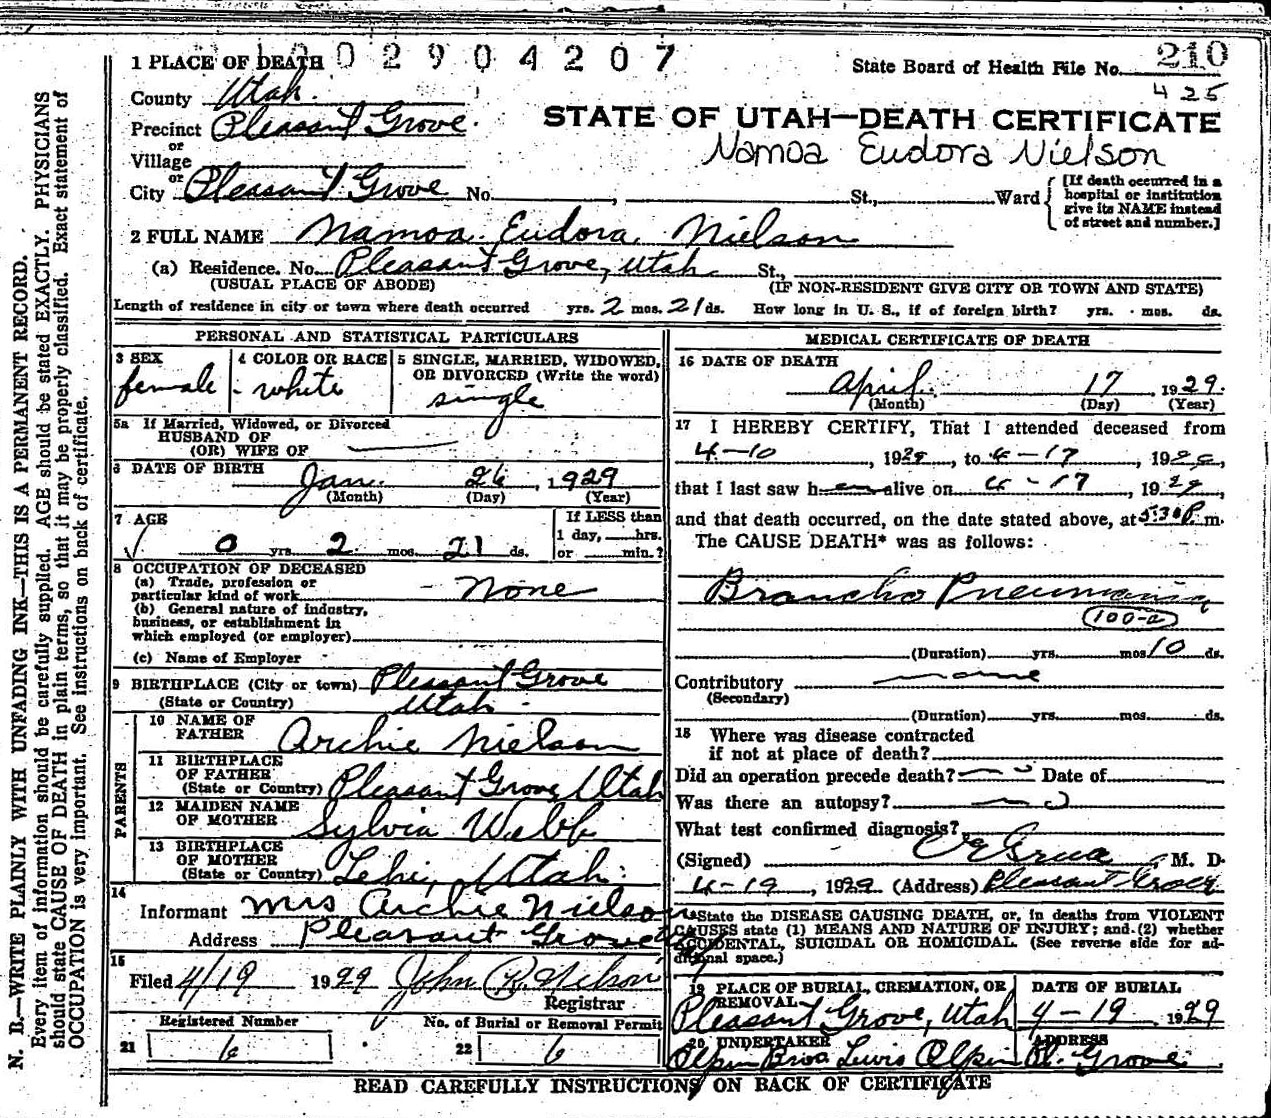 1002904207
1 PLACE OF DEATH
State Board of Health File No. 210
425
County Utah.
STATE OF UTAH—DEATH CERTIFICATE
Precinct Pleasant Grove.
or
Namoa Eudora Nielson
Village
or
City Pleasant Grove No. , St., Ward
[If death occurred in a
hospital or institution
give its NAME instead
of street and number.]
2 FULL NAME Namoa Eudora Nielson
(a) Residence. No. Pleasant Grove, Utah St.,
(USUAL PLACE OF ABODE) (IF NON-RESIDENT GIVE CITY OR TOWN AND STATE)
Length of residence in city or town where death occurred yrs. 2 mos. 21 ds. How long in U. S., if of foreign birth? yrs. mos. ds.
PERSONAL AND STATISTICAL PARTICULARS
3 SEX
female
4 COLOR OR RACE
white
5 SINGLE, MARRIED, WIDOWED,
OR DIVORCED (Write the word)
single
5a If Married, Widowed, or Divorced
HUSBAND OF
(OR) WIFE OF
6 DATE OF BIRTH
Jan. 26, 1929
(Month) (Day) (Year)
7 AGE
0 yrs. 2 mos. 21 ds.
If LESS than
1 day, hrs.
or min.?
8 OCCUPATION OF DECEASED
(a) Trade, profession or
particular kind of work None
(b) General nature of industry,
business, or establishment in
which employed (or employer)
(c) Name of Employer
9 BIRTHPLACE (City or town) Pleasant Grove
(State or Country) Utah
PARENTS
10 NAME OF
FATHER Archie Nielson
11 BIRTHPLACE
OF FATHER
(State or Country) Pleasant Grove, Utah
12 MAIDEN NAME
OF MOTHER Sylvia Webb
13 BIRTHPLACE
OF MOTHER
(State or Country) Lehi, Utah.
14
Informant Mrs Archie Nielson
Address Pleasant Grove
15
Filed 4/19 1929 John R. Nelson
Registrar
Registered Number No. of Burial or Removal Permit
21 6 22 6
MEDICAL CERTIFICATE OF DEATH
16 DATE OF DEATH
April 17 1929.
(Month) (Day) (Year)
17 I HEREBY CERTIFY, That I attended deceased from
4-10, 1929, to 4-17, 1929,
that I last saw h alive on 4-17, 1929,
and that death occurred, on the date stated above, at 5:30 P. m.
The CAUSE DEATH* was as follows:
Broncho Pneumonia
100-a
(Duration) yrs. mos 10 ds.
Contributory none
(Secondary)
(Duration) yrs. mos. ds.
18 Where was disease contracted
if not at place of death?
Did an operation precede death? no Date of
Was there an autopsy? no
What test confirmed diagnosis?
(Signed) Grua, M. D.
4-19, 1929 (Address) Pleasant Grove
*State the DISEASE CAUSING DEATH, or, in deaths from VIOLENT
CAUSES state (1) MEANS AND NATURE OF INJURY; and (2) whether
ACCIDENTAL, SUICIDAL OR HOMICIDAL. (See reverse side for ad-
ditional space.)
19 PLACE OF BURIAL, CREMATION, OR
REMOVAL
Pleasant Grove, Utah
DATE OF BURIAL
4-19 1929
20 UNDERTAKER
Olpin Bros Lewis Olpin
ADDRESS
Pl. Grove
READ CAREFULLY INSTRUCTIONS ON BACK OF CERTIFICATE
N. B.—WRITE PLAINLY WITH UNFADING INK—THIS IS A PERMANENT RECORD.
Every item of information should be carefully supplied. AGE should be stated EXACTLY. PHYSICIANS
should state CAUSE OF DEATH in plain terms, so that it may be properly classified. Exact statement of
OCCUPATION is very important. See instructions on back of certificate.